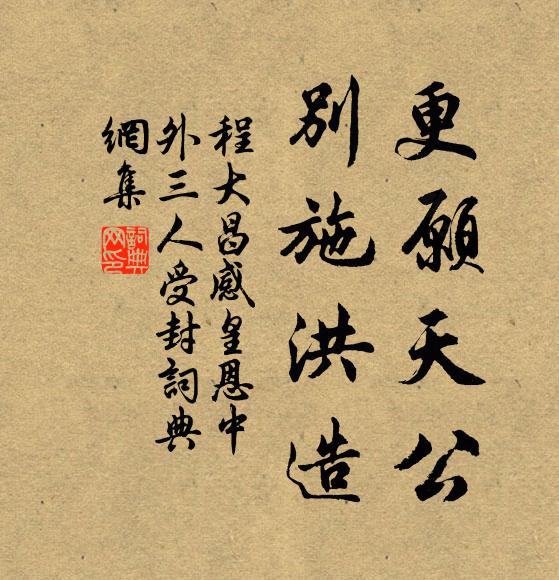 更願天公
別施洪造
程大昌感皇恩中
外三人受封詞典
網集
詞典网印